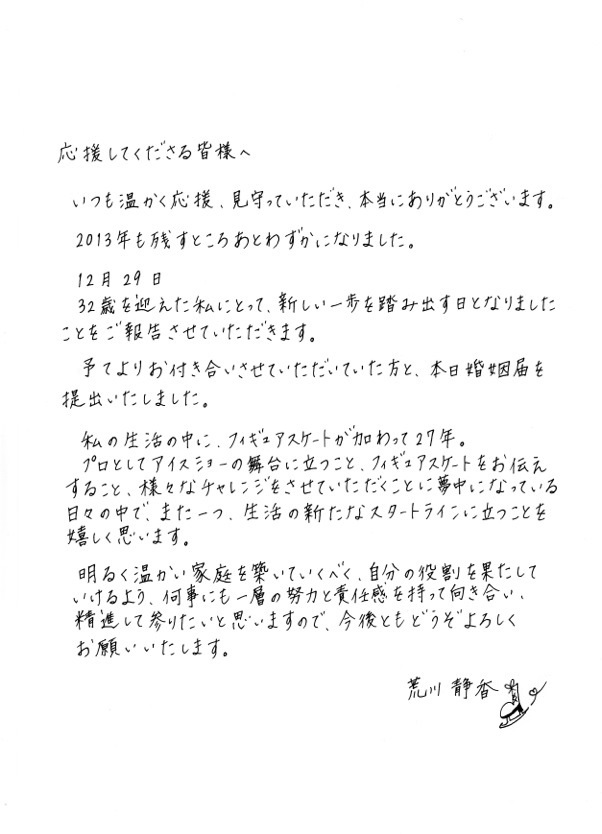 応援してくださる皆様へ
いつも温かく応援、見守っていただき、本当にありがとうございます。
2013年も残すところあとわずかになりました。
12月29日
32歳を迎えた私にとって、新しい一歩を踏み出す日となりました
ことをご報告させていただきます。
予てよりお付き合いさせていただいていた方と、本日婚姻届を
提出いたしました。
私の生活の中に、フィギュアスケートが加わって27年。
プロとしてアイスショーの舞台に立つこと、フィギュアスケートをお伝え
すること、様々なチャレンジをさせていただくことに夢中になっている
日々の中で、また一つ、生活の新たなスタートラインに立つことを
嬉しく思います。
明るく温かい家庭を築いていくべく、自分の役割を果たして
いけるよう、何事にも一層の努力と責任感を持って向き合い、
精進して参りたいと思いますので、今後ともどうぞよろしく
お願いいたします。
荒川静香